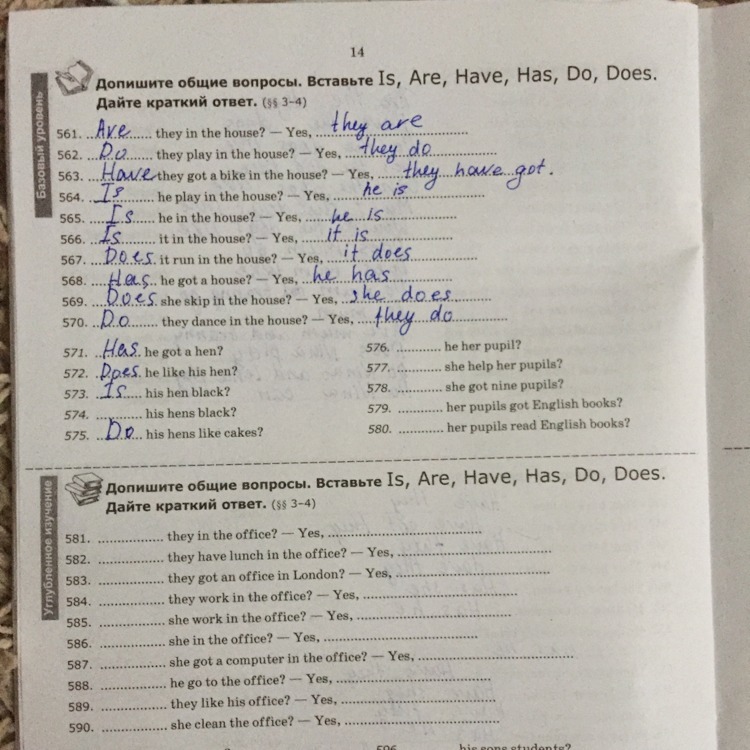 14
Базовый уровень
Допишите общие вопросы. Вставьте Is, Are, Have, Has, Do, Does.
Дайте краткий ответ. (§§ 3–4)
561. Are they in the house? — Yes, they are
562. Do they play in the house? — Yes, they do
563. Have they got a bike in the house? — Yes, they have got.
564. Is he play in the house? — Yes, he is
565. Is he in the house? — Yes, he is
566. Is it in the house? — Yes, it is
567. Does it run in the house? — Yes, it does
568. Has he got a house? — Yes, he has
569. Does she skip in the house? — Yes, she does
570. Do they dance in the house? — Yes, they do
571. Has he got a hen?
572. Does he like his hen?
573. Is his hen black?
574. ............ his hens black?
575. Do his hens like cakes?
576. ............ he her pupil?
577. ............ she help her pupils?
578. ............ she got nine pupils?
579. ............ her pupils got English books?
580. ............ her pupils read English books?
Углубленное изучение
Допишите общие вопросы. Вставьте Is, Are, Have, Has, Do, Does.
Дайте краткий ответ. (§§ 3–4)
581. ................ they in the office? — Yes, ................
582. ................ they have lunch in the office? — Yes, ................
583. ................ they got an office in London? — Yes, ................
584. ................ they work in the office? — Yes, ................
585. ................ she work in the office? — Yes, ................
586. ................ she in the office? — Yes, ................
587. ................ she got a computer in the office? — Yes, ................
588. ................ he go to the office? — Yes, ................
589. ................ they like his office? — Yes, ................
590. ................ she clean the office? — Yes, ................
596. his sons students?